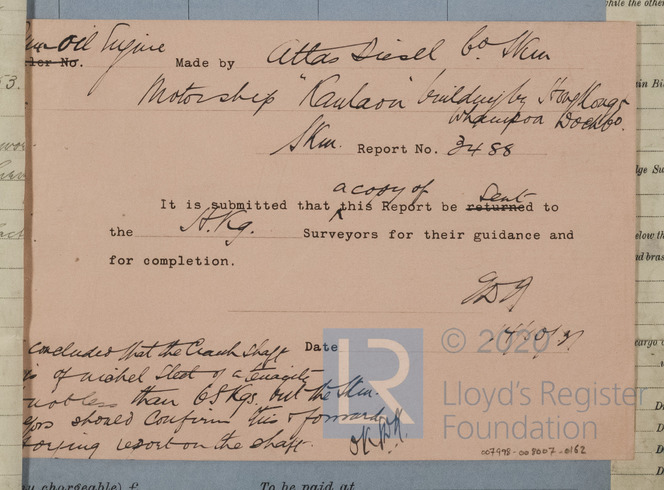 Oil Engine
ler No. Made by Atlas Diesel Co. Skm
Motorship "Kanlaon" building by HongKong &
Whampoa Dock Co.
Skm. Report No. 3488
a copy of Sent
It is submitted that this Report be returned to
the H.Kg. Surveyors for their guidance and
for completion.
Date
concluded that the Crank Shaft
is of nickel Steel of a tenacity
not less than 68 Kgs. but the Skm.
should confirm this & forward
report on the shaft.
© 2020
LR
Lloyd's Register
Foundation
007998-008007-0162
while the other
53.
To be paid at
chargeable) £